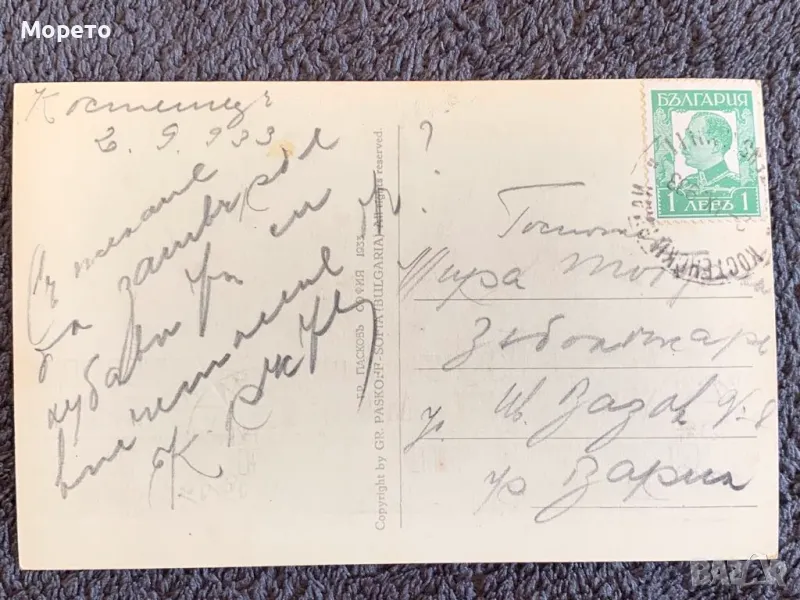 Морето
Костенецъ
2.9.933
Съ желание
да затвърдя
хубавитѣ ти
впечатления
К
ГР. ПАСКОВЪ СОФИЯ 1933
Copyright by GR. PASKOFF-SOFIA (BULGARIA) All rights reserved.
БЪЛГАРИЯ
1 ЛЕВЪ 1
КОСТЕНСКИ БАНИ
?
Госпожа
Мира
Зъболекарь
ул. Ив. Вазовъ № 8
гр Варна
BAZAR